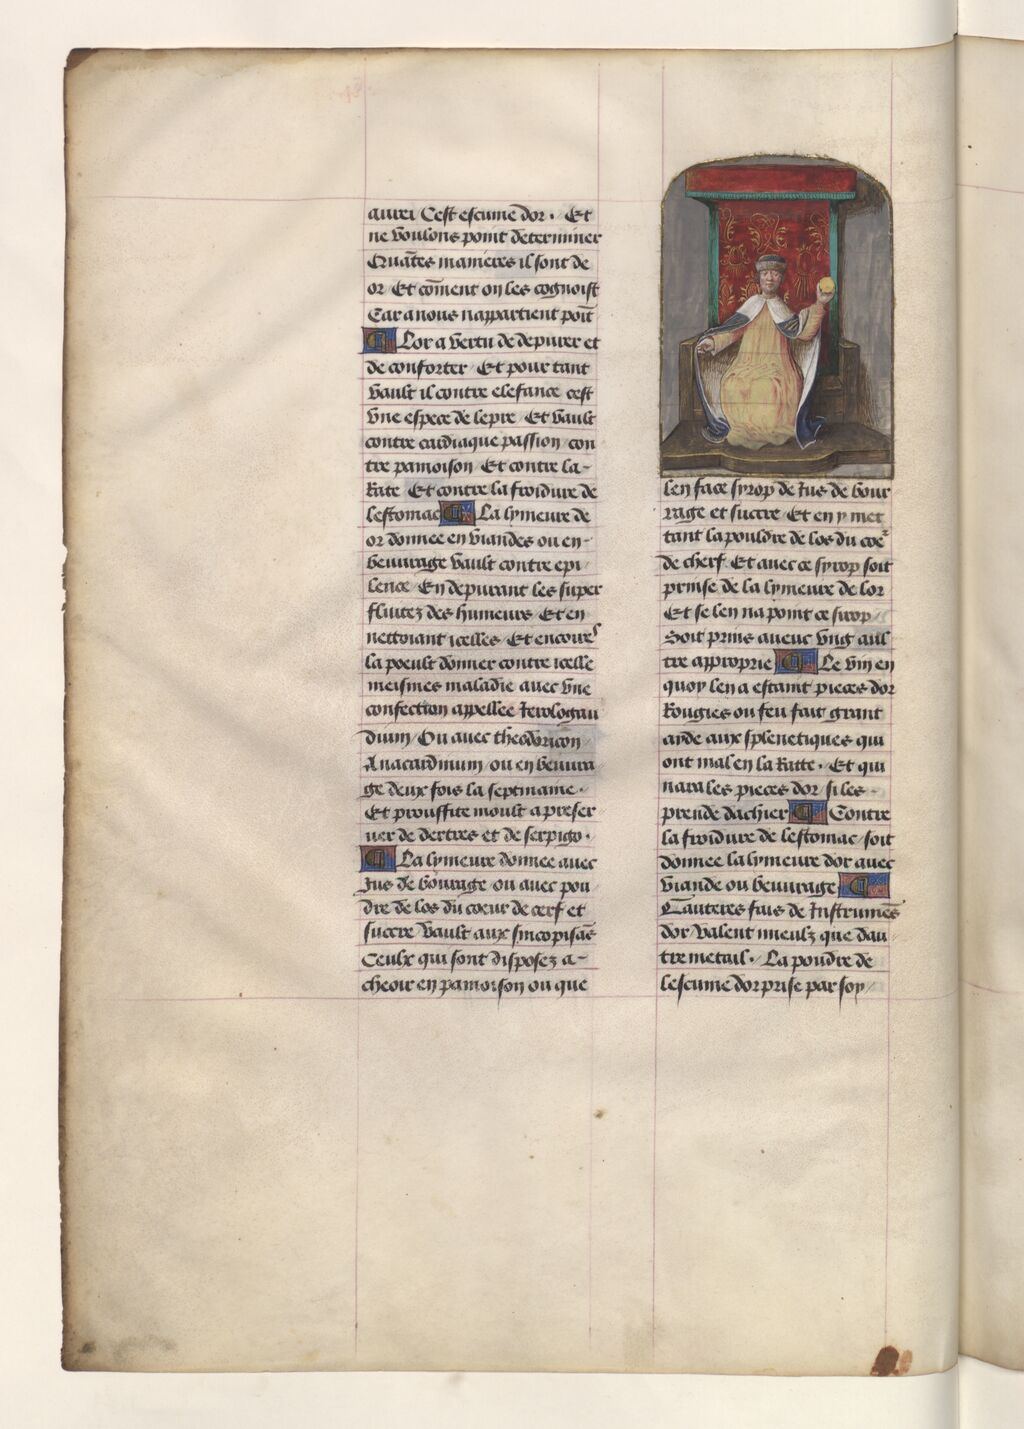 aurei Cest escume dor. Et
ne voulons point determiner
Quātes manieres il sont de
or Et cōment on les cognoist
Car a nous nappartient poīt
Lor a vertu de depurer et
de conforter Et pour tant
vault il contre elefance cest
vne espece de lepre Et vault
contre cardiaque passion con
tre pamoison Et contre la
Rate Et contre la froidure de
lestomac La lymeure de
or donnee en viandes ou en
beuurage vault contre epi
lence En depurant les super
fluitez des humeurs Et en
nettoiant icelles Et encores
la poeult donner contre icelle
meismes maladie avec vne
confection appellee Jerologau
dium Ou avec theodoricon
Anacardinum ou en beuura
ge deux fois la septmaine.
Et prouffite moult a preser
uer de dertres et de serpigo.
La lymeure donnee avec
Jus de bourage ou avec pou
dre de los du coeur de cerf et
succre vault aux sincopisās
Ceulx qui sont disposez a
cheoir en pamoison ou que
len face syrop de Jus de bour
rage et succre Et en y met
tant la pouldre de los du coer
de cherf Et avec ce syrop soit
prinse de la lymeure de lor
Et se len na point ce sirop
Soit prins aveuc vng aul
tre approprie Le vin en
quoy len a estaint pieces dor
Rougies ou feu fait grant
ayde aux splenetiques qui
ont mal en la Ratte. Et qui
nara les pieces dor si les
prende dachier Contre
la froidure de lestomac soit
donnee la lymeure dor avec
viande ou beuurage
Cauteres fais de Instrumēs
dor valent mieulz que dau
tre metail. La poudre de
lescume dor prise par soy